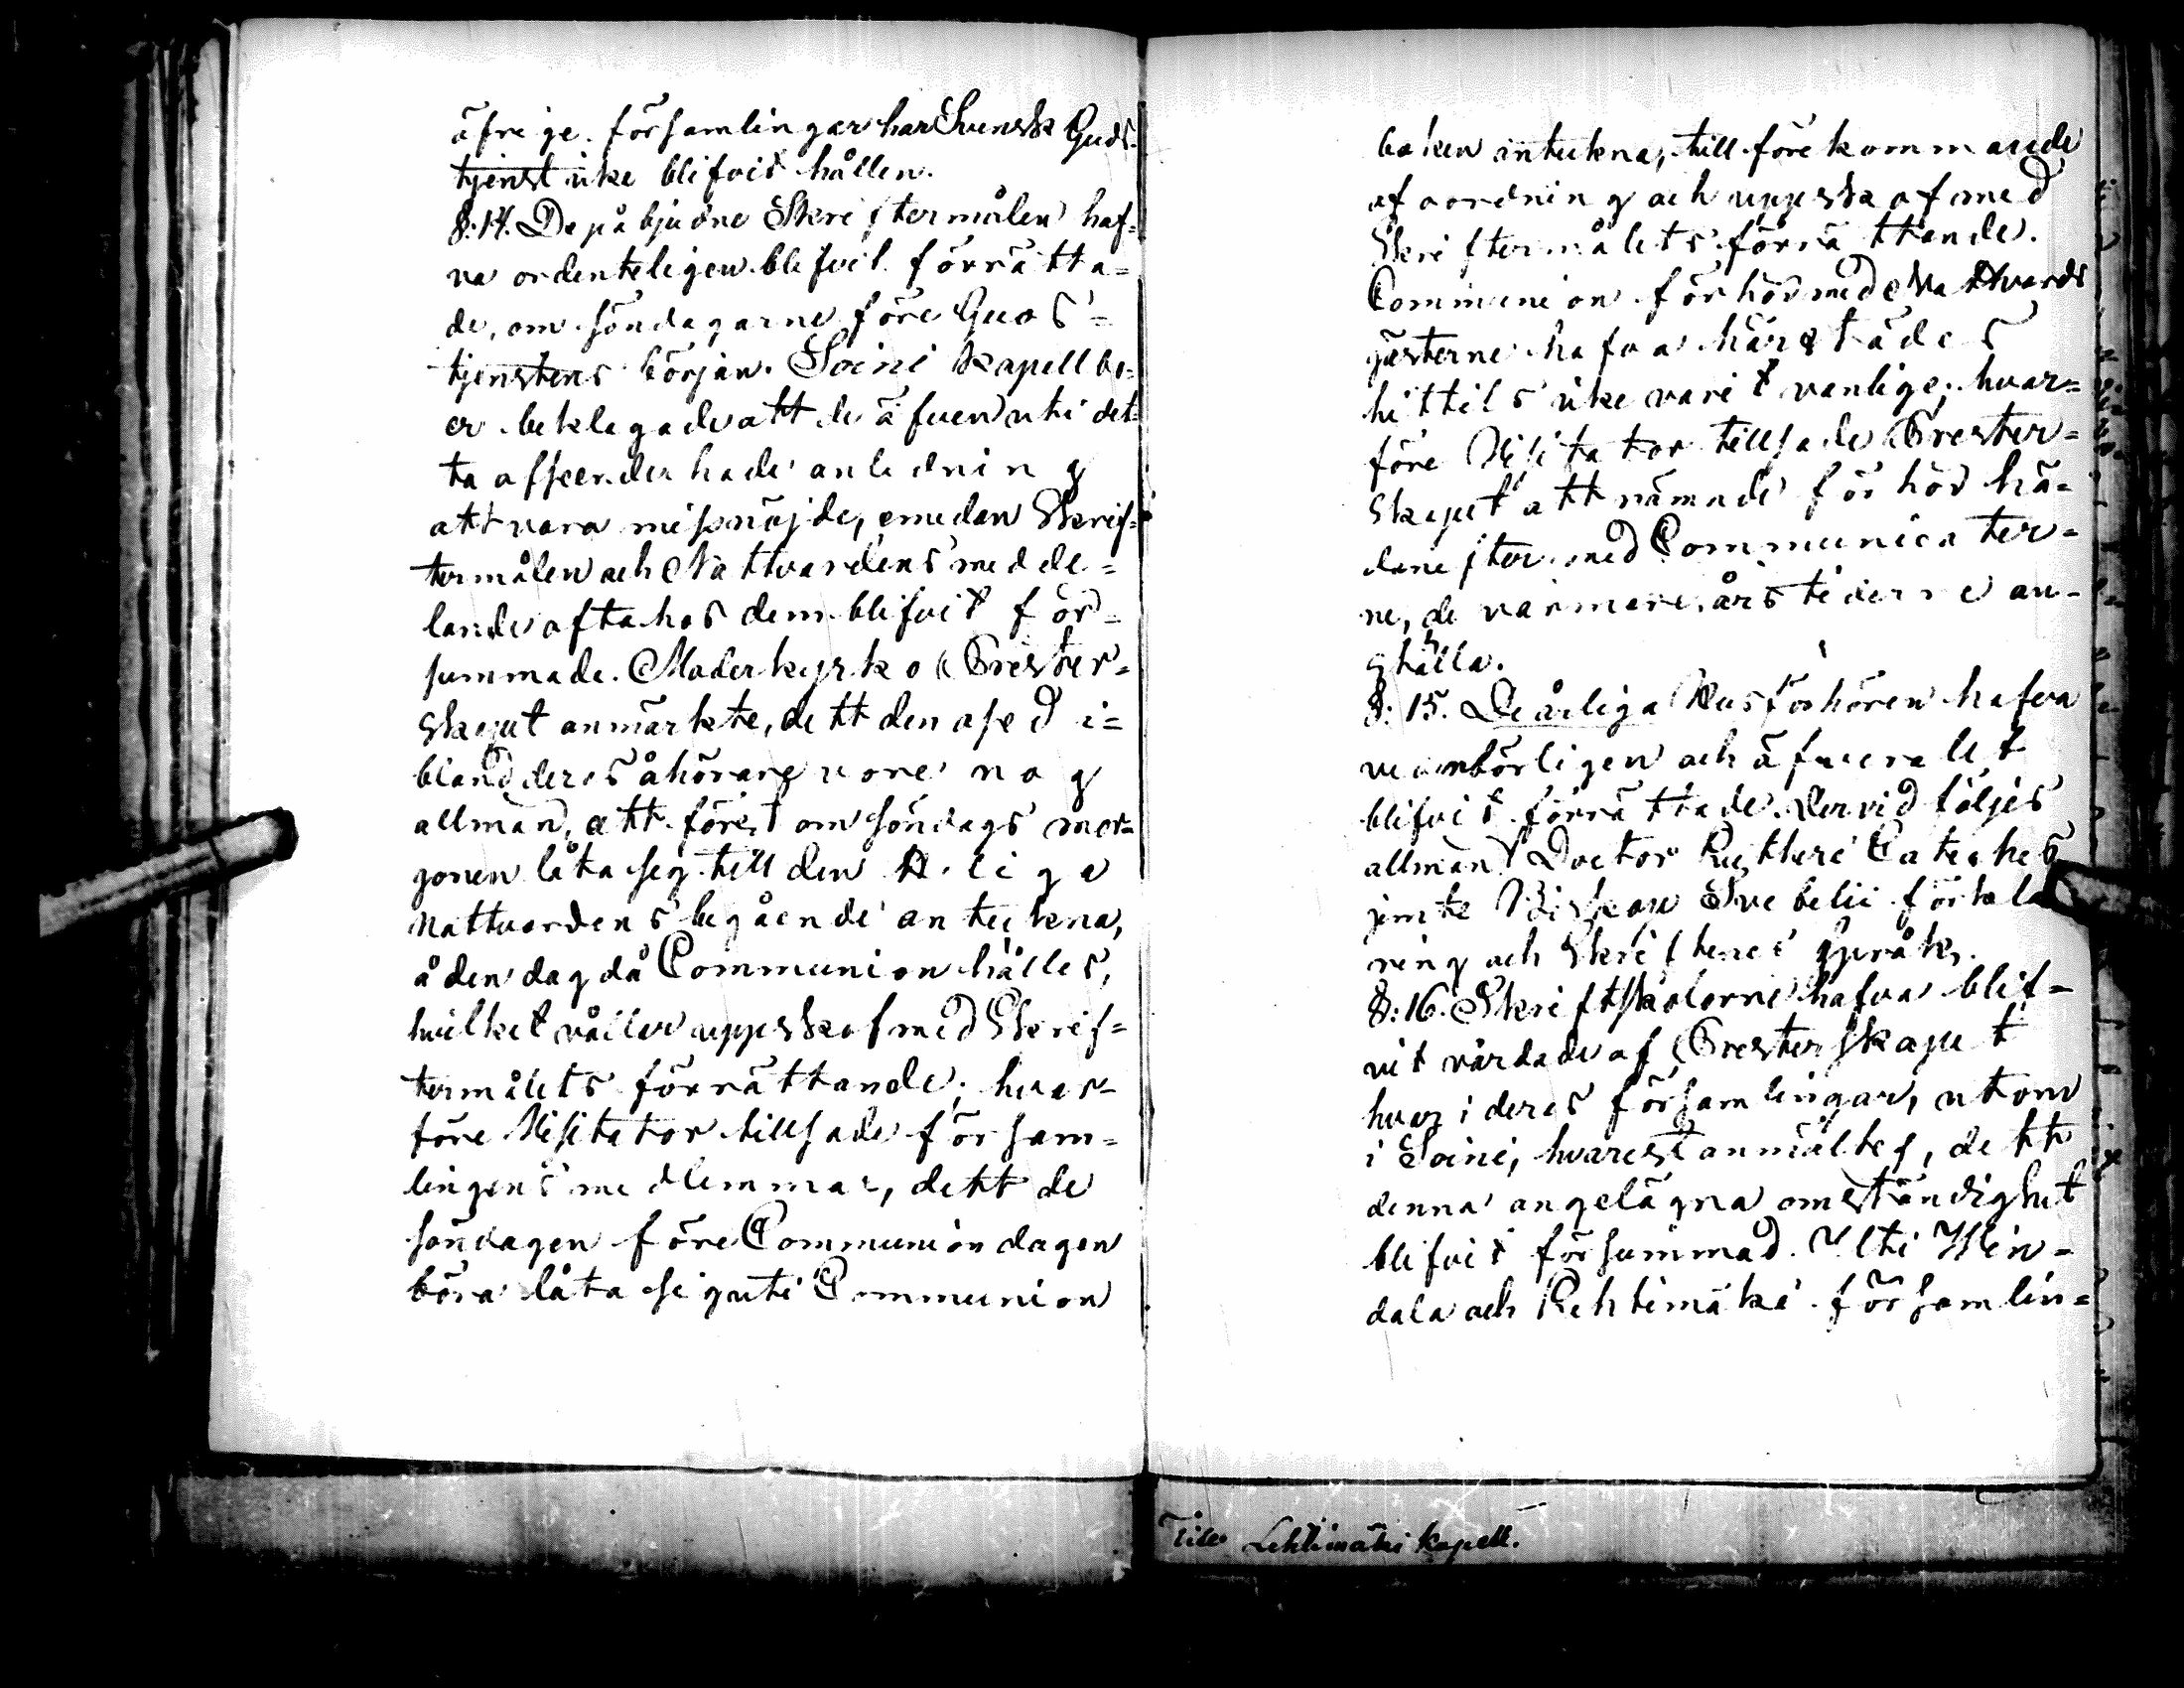 öfrige församlingar har Svensk Guds-
tjenst icke blifvit hållen.
§: 14. De på bjudne Skriftermålen haf=
va ordenteligen blifvit förrätta=
de, om söndagarne före Guds=
tjenstens början. Soini kapellbo=
er beklagade att de äfven uti det=
ta afseende hade anledning
att vara missnöjde, emedan Skrif=
termålen och Nattvardens medde=
lande ofta hos dem blifvit för=
summade. Moderkyrko Prester=
skapet anmärkte, det den osed i=
bland deras åhörare vore nog
allmän, att först om söndags mor=
gonen låta sig till den H. liga
Nattvardens begående anteckna,
å den dag då Communion hålles,
hvilket våller uppskof med Skrif=
termålets förrättande; hvar=
före Visitator tillsade försam=
lingens medlemmar, dett de
söndagen före Communiondagen
böra låta sig uti Communion
boken inteckna, till förekommande
af oordning och uppskof med
Skriftermålets förrättande.
Communion förhör med Nattvards
gästerne hafva härstädes
hittils icke varit vanlige; hvar=
före Visitator tillsade Prester=
skapet att nämnde förhör hä=
danefter med Communicanter=
ne, de varmare årstiderne an=
ställa.
§: 15. De årliga Husförhören hafva
vederbörligen och öfverallt
blifvit förrättade. Dervid följes
allmänt Doctor Lutheri Cateches
jemte Biskop Svebelii förkla
ring och Skriftenes språk.
§: 16. Skriftskolorne hafva blif=
vit vårdade af Presterskapet
hvar i deras församlingar, utom
i Soini, hvarest anmältes, dett
denna angelägna omständighet
blifvit försummad. Uti Win=
dala och Lehtimäki församlin=
Lehtimäki Kapell.